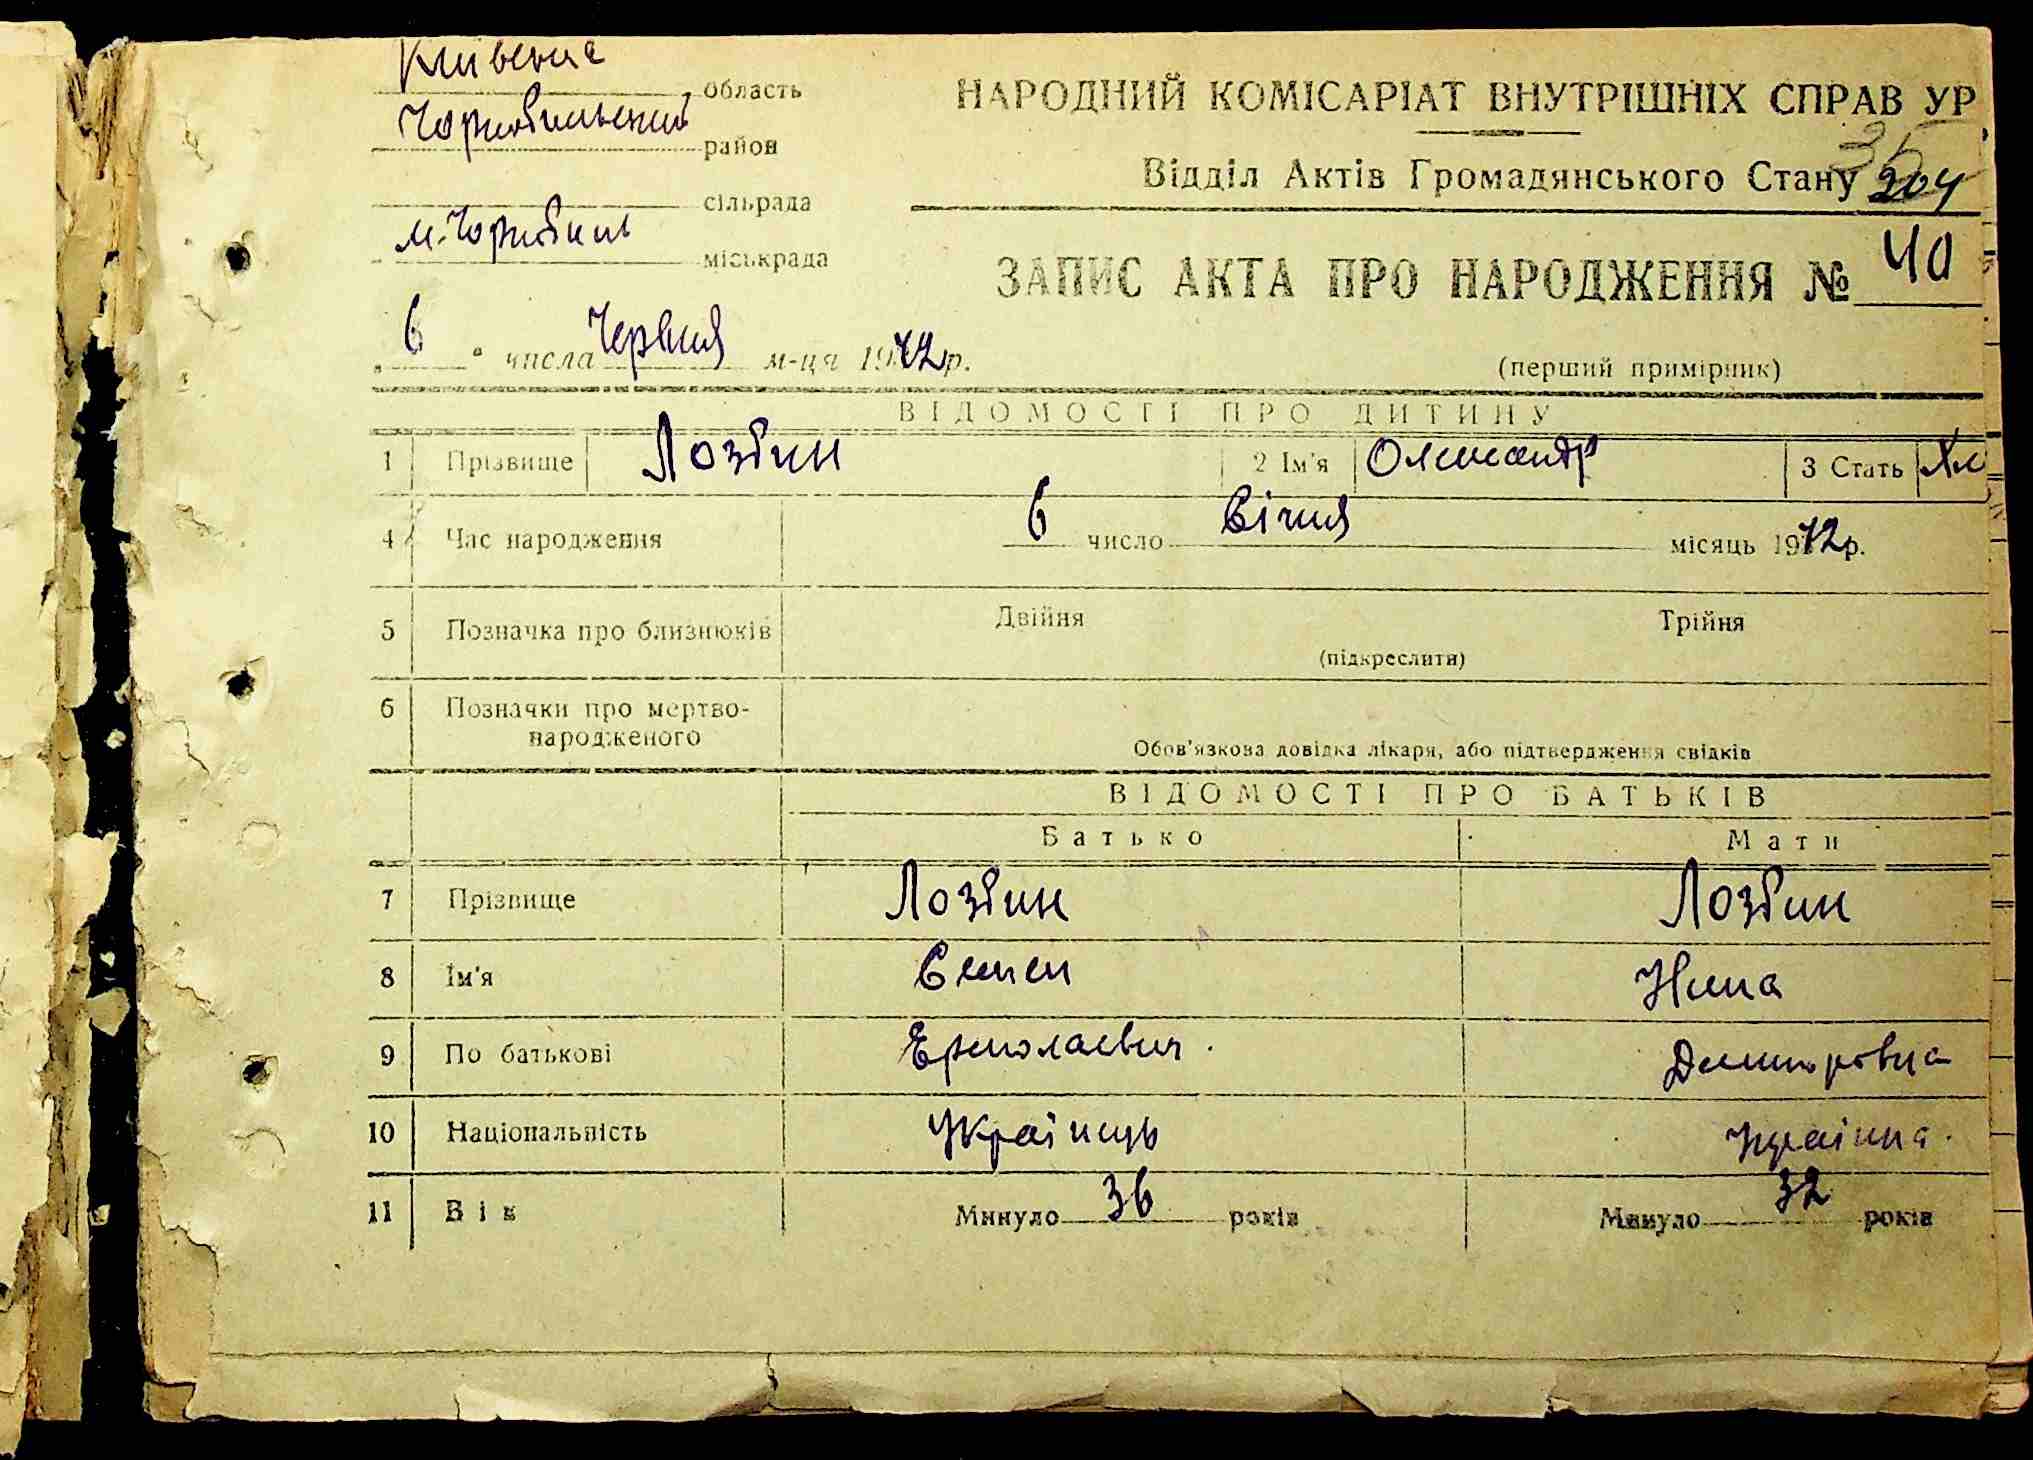 Київська область
Чорнобильський район
сільрада
м. Чорнобиль міськрада
НАРОДНИЙ КОМІСАРІАТ ВНУТРІШНІХ СПРАВ УР
Відділ Актів Громадянського Стану
35
204
ЗАПИС АКТА ПРО НАРОДЖЕННЯ № 40
„ 6 " числа Червня м-ця 1942 р.
(перший примірник)
ВІДОМОСТІ ПРО ДИТИНУ
1 Прізвище Лозбин 2 Ім'я Олександр 3 Стать Хл
4 Час народження 6 число Січня місяць 1942 р.
5 Позначка про близнюків Двійня Трійня
(підкреслити)
6 Позначки про мертво-
народженого
Обов'язкова довідка лікаря, або підтвердження свідків
ВІДОМОСТІ ПРО БАТЬКІВ
Батько Мати
7 Прізвище Лозбин Лозбин
8 Ім'я Семен Нина
9 По батькові Ермолаевич Дмитровна
10 Національність Українець Українка
11 Вік Минуло 36 років Минуло 32 років